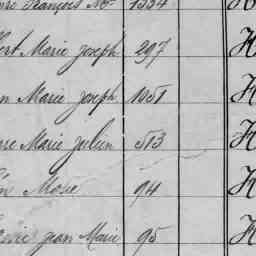 François M 1334
Marie Joseph 297 H
Marie Joseph 1051 H
Marie Julien 513 H
Moïse 94 H
Jean Marie 95 H